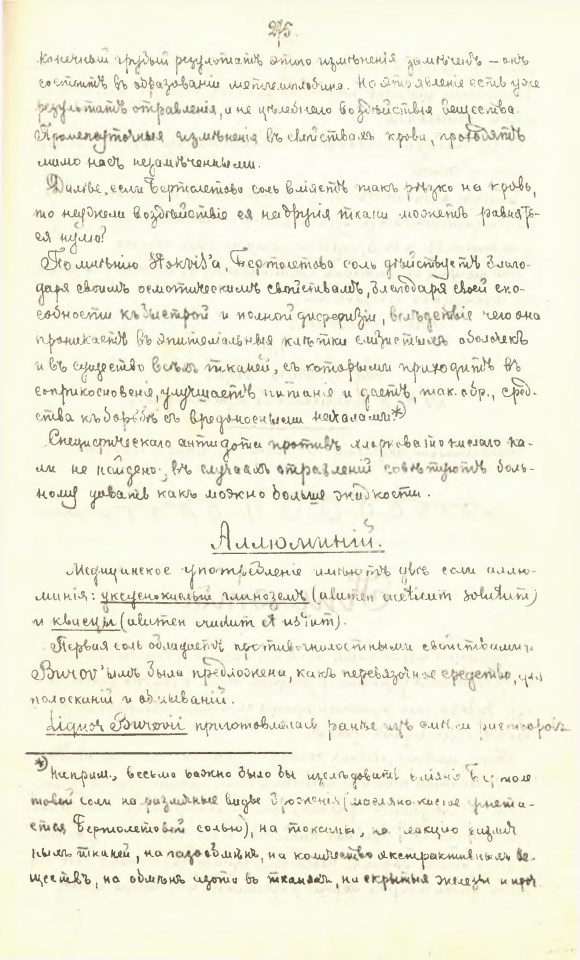 275.
конечный грубый результатъ этого измѣненія замѣченъ – онъ
состоитъ въ образованіи метгемоглобина. Но это явленіе есть уже
результатъ отравленія, и не цѣлебнаго воздѣйствія вещества.
Промежуточныя измѣненія въ свойствахъ крови, проходятъ
мимо насъ незамѣченными.
Далѣе, если Бертолетова соль вліяетъ такъ рѣзко на кровь,
то неужели воздѣйствіе ея на другія ткани можетъ равнять-
ся нулю?
По мнѣнію Stokvis'a, Бертолетова соль дѣйствуетъ благо-
даря своимъ осмотическимъ свойствамъ, благодаря своей спо-
собности къ быстрой и полной диффузіи, вслѣдствіе чего она
проникаетъ въ эпителіальныя клѣтки слизистыхъ оболочекъ
и въ существо всѣхъ тканей, съ которыми приходитъ въ
соприкосновеніе, улучшаетъ питаніе и даетъ, так. обр., сред-
ства къ борьбѣ съ вредоносными началами.*)
Специфическаго антидота противъ хлорноватокислаго ка-
ли не найдено; въ случаяхъ отравленій совѣтуютъ боль-
ному давать какъ можно больше жидкости.
Аллюминій.
Медицинское употребленіе имѣютъ двѣ соли аллю-
минія: уксуснокислый глиноземъ (alumen aceticum solutum)
и квасцы (alumen crudum et ustum).
Первая соль обладаетъ противогнилостными свойствами и
Burov'ымъ была предложена, какъ перевязочное средство, для
полосканій и обмываній.
Liquor Burovii приготовлялся ранѣе изъ смѣси растворовъ
*) Наприм., весьма важно было бы изслѣдовать вліяніе Бертоле-
товой соли на различные виды броженія (масляно-кислое угнета-
ется Бертолетовой солью), на токсины, на реакцію
нымъ тканей, на газообмѣнъ, на количество экстрактивныхъ ве-
ществъ, на обмѣнъ азота въ тканяхъ, на скрытыя железы и проч.